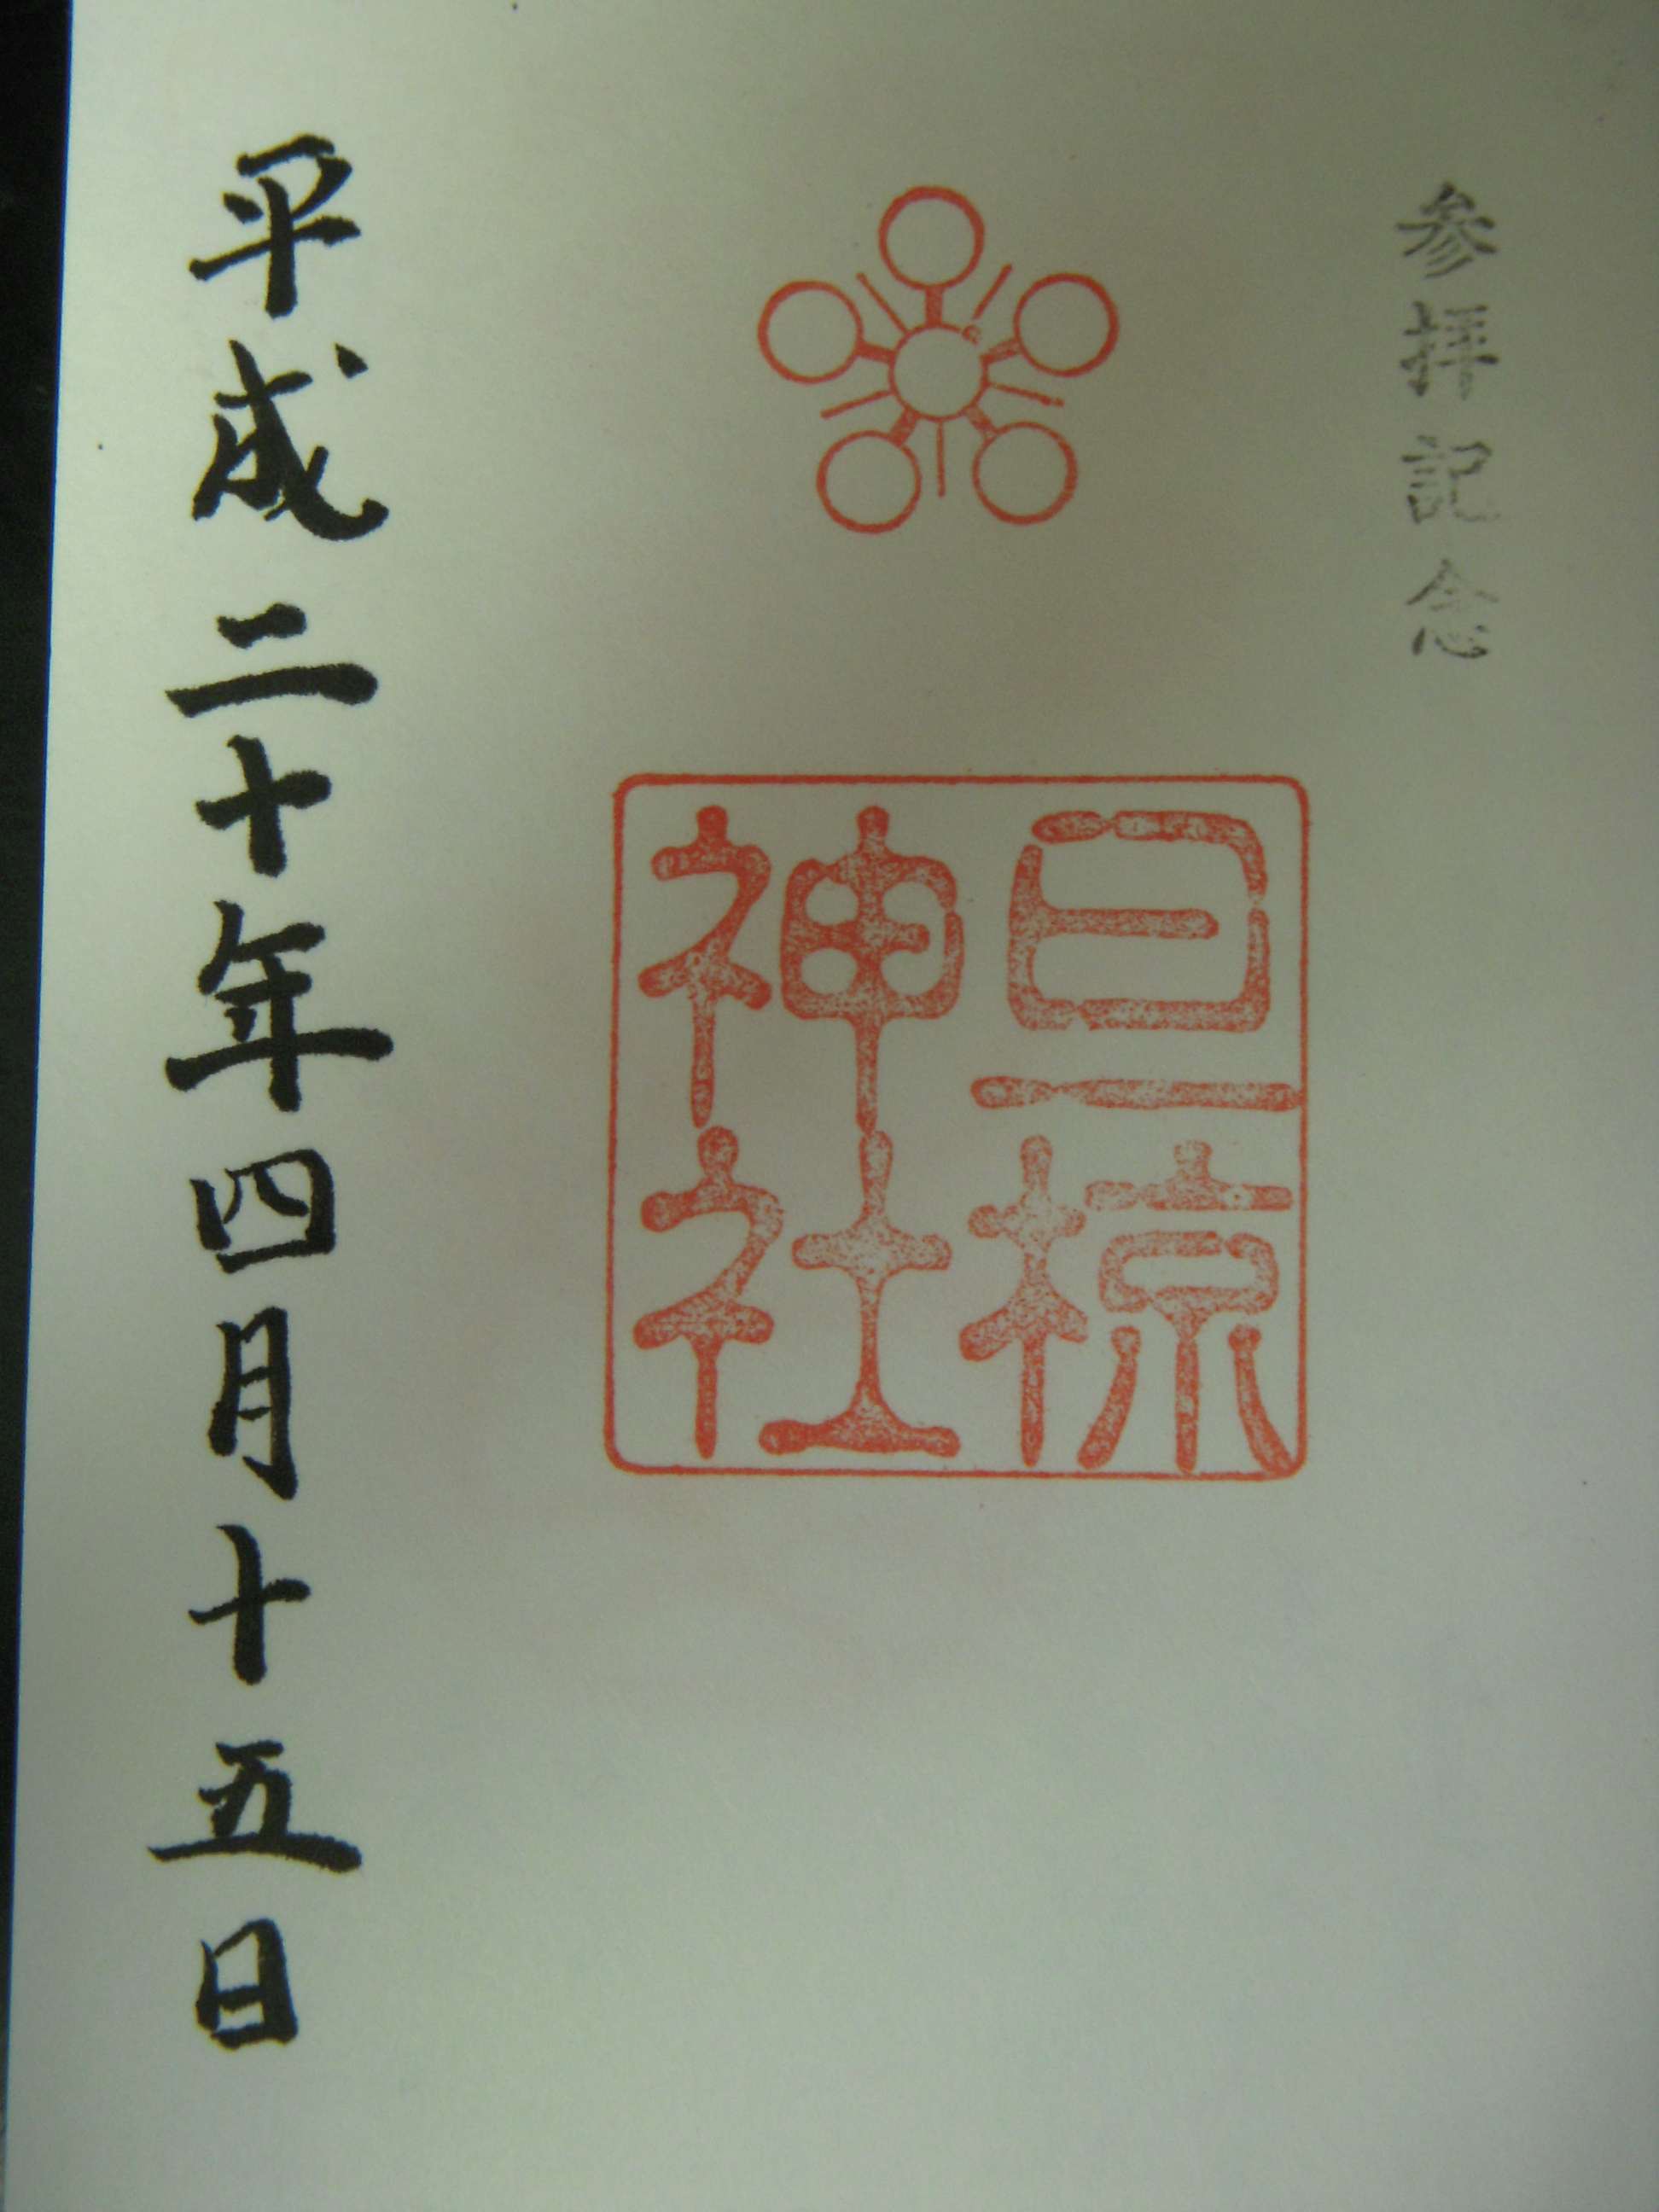 参拝記念
旦椋神社
平成二十年四月十五日